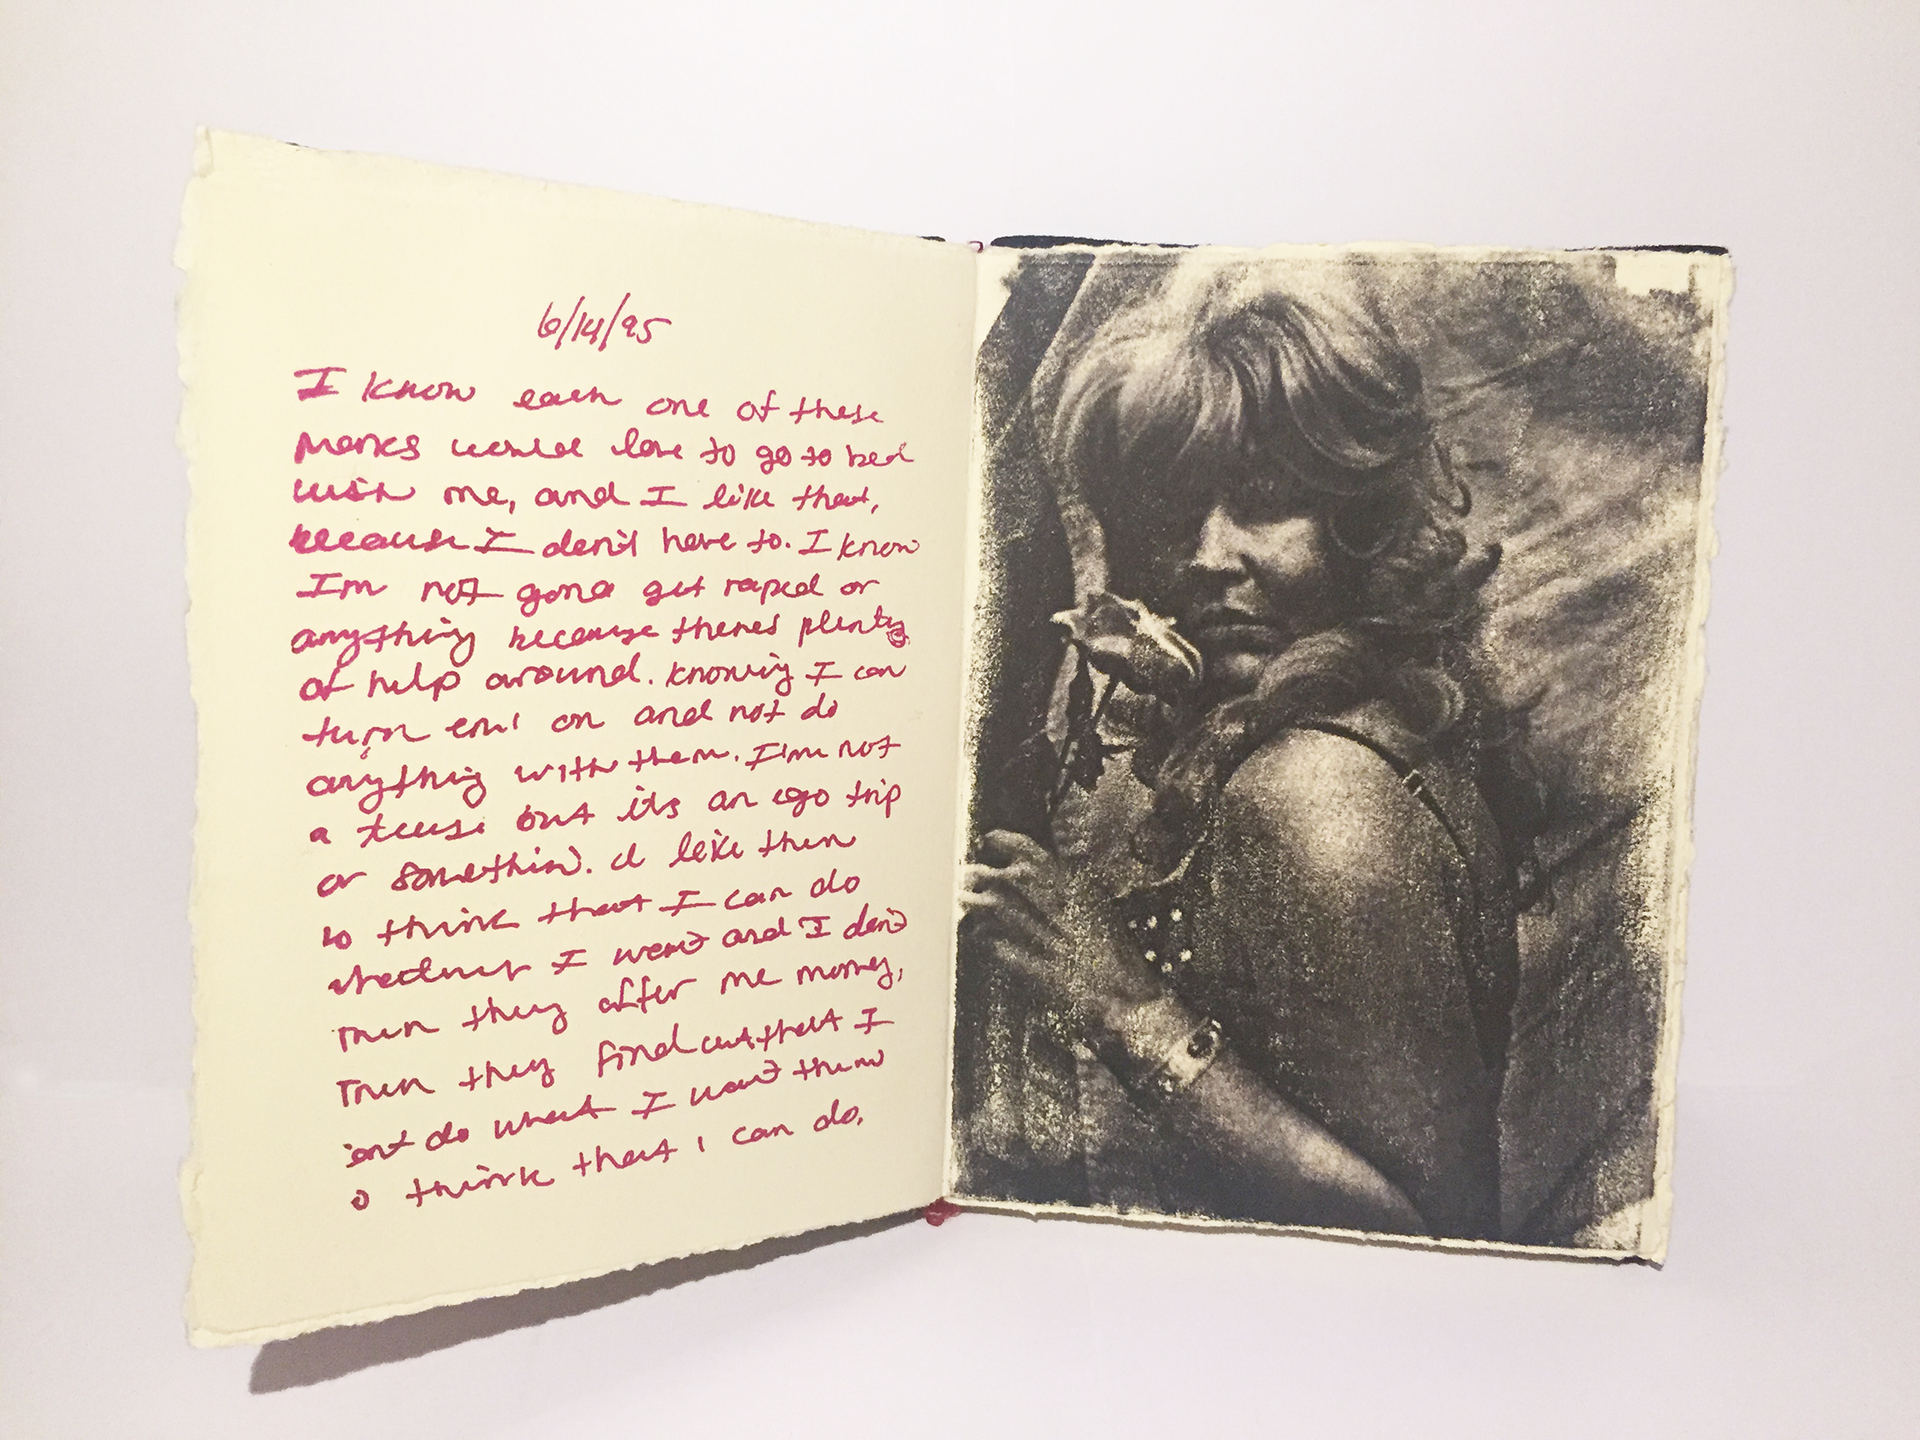 6/14/95
I know each one of these
Marks would love to go to bed
with me, and I like that,
because I don't have to. I know
Im not gona get raped or
anything because theres plenty
of help around. Knowing I can
turn em' on and not do
anything with them. I'm not
a tease but its an ego trip
or somethin'. I like them
to think that I can do
whatever I want and I don't
Then they offer me money,
Then they find out that I
ant do what I want them
o think that i can do.